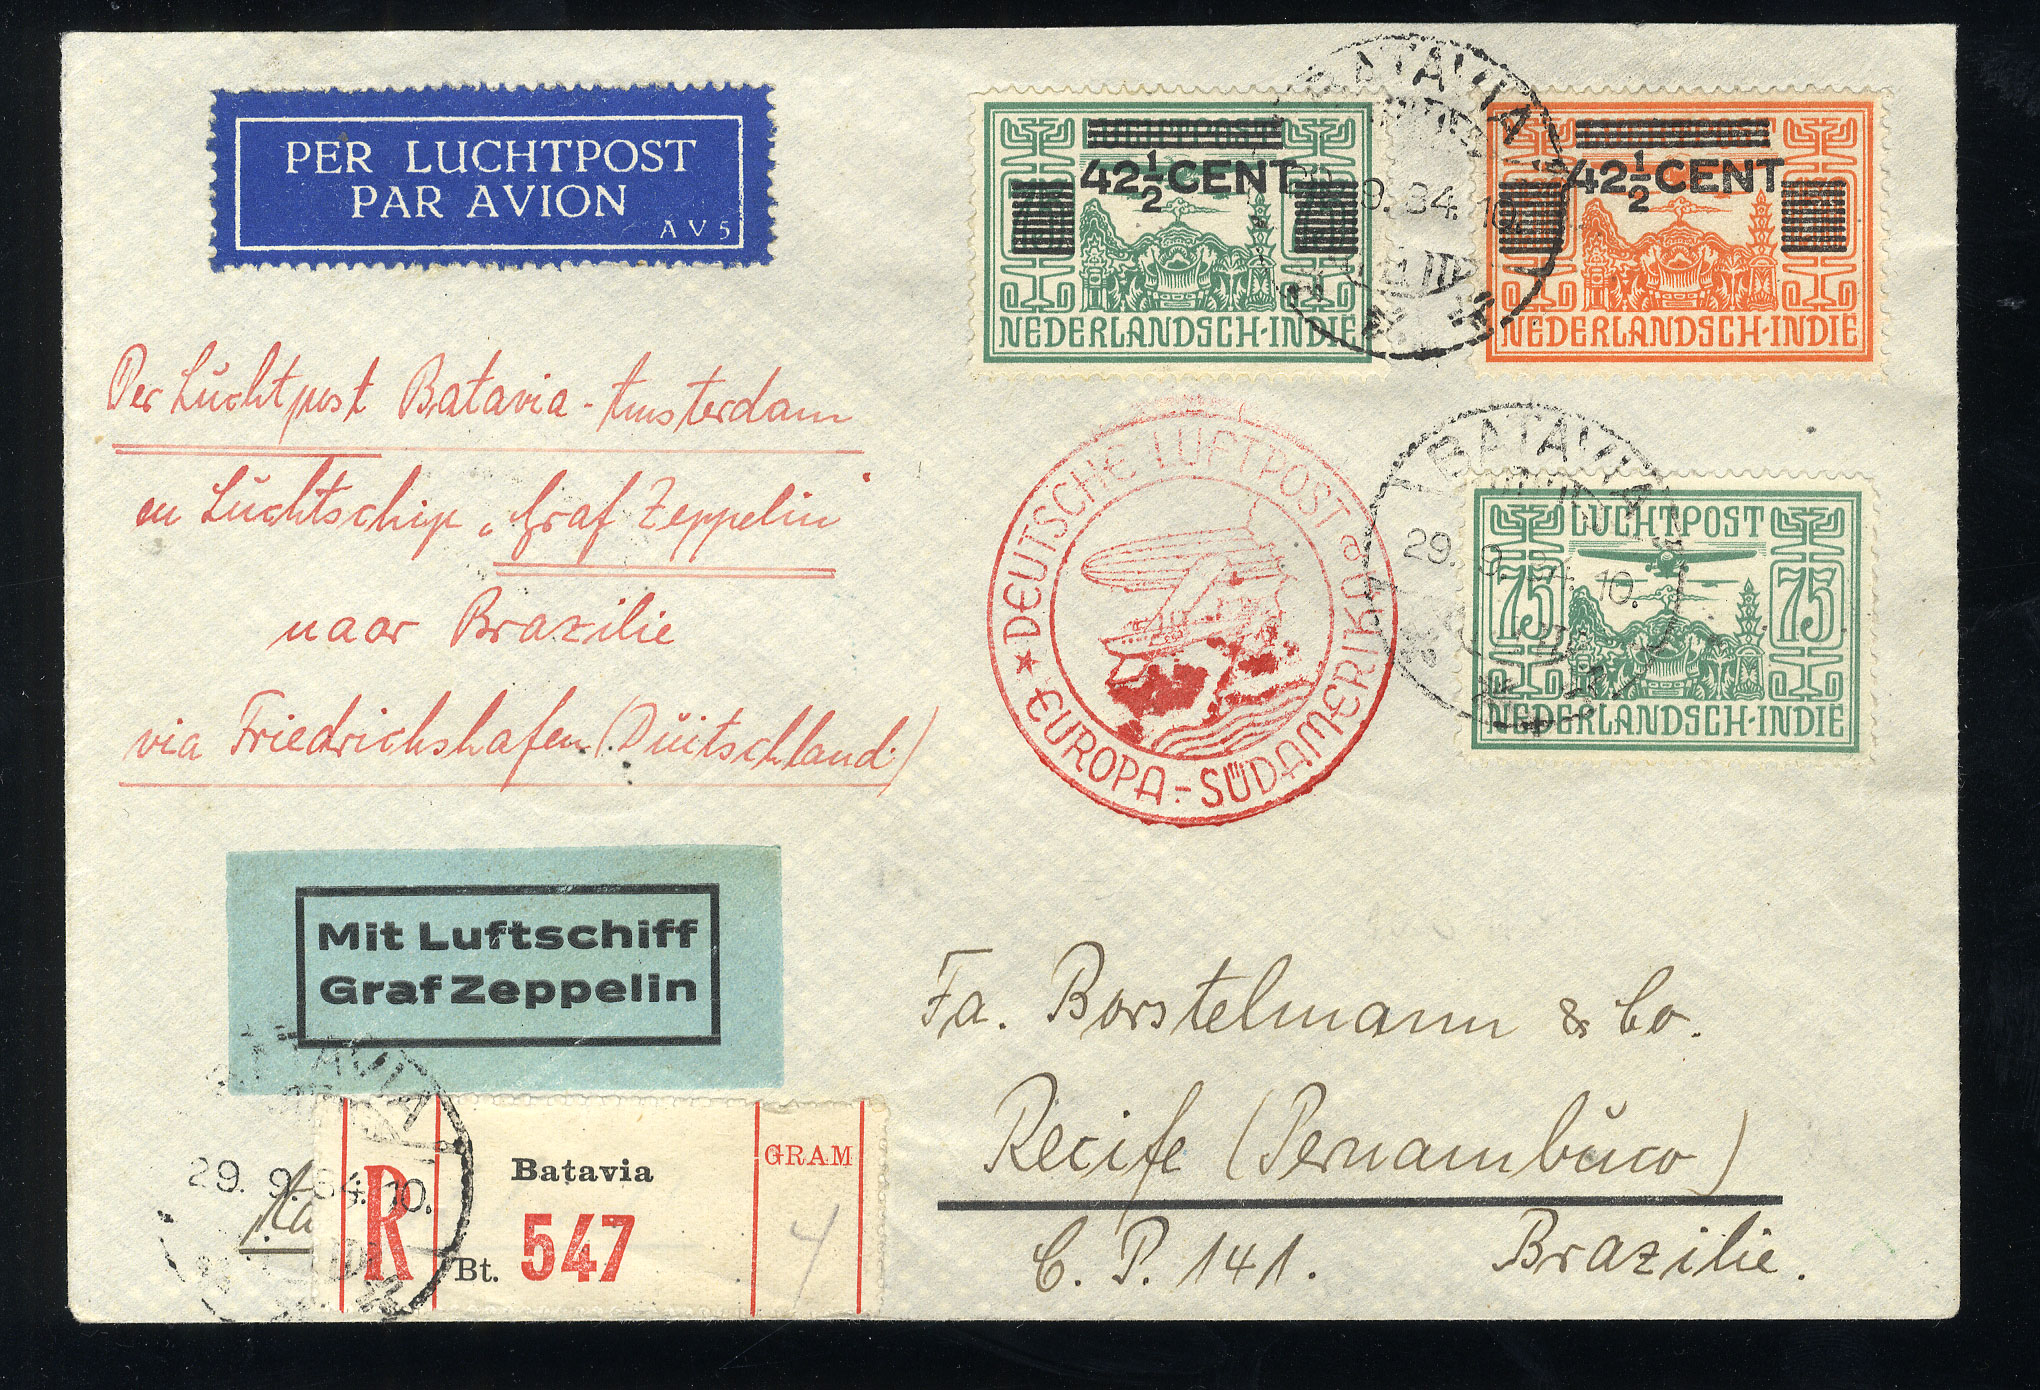 PER LUCHTPOST
PAR AVION
AV5
LUCHTPOST
42½ CENT
NEDERLANDSCH-INDIE
LUCHTPOST
42½ CENT
NEDERLANDSCH-INDIE
BATAVIA
9.34.10.
Per Luchtpost Batavia-Amsterdam
en Luchtschip „Graf Zeppelin"
naar Brazilie
via Friedrichshafen (Duitschland)
DEUTSCHE LUFTPOST
EUROPA-SÜDAMERIKA
a
BATAVIA
29.9.34.10.
LUCHTPOST
75 75
NEDERLANDSCH-INDIE
Mit Luftschiff
Graf Zeppelin
BATAVIA
29.9.34.10.
R
Batavia
Bt. 547
GRAM
4
Fa. Borstelmann & Co.
Recife (Pernambuco)
C. P. 141. Brazilie.